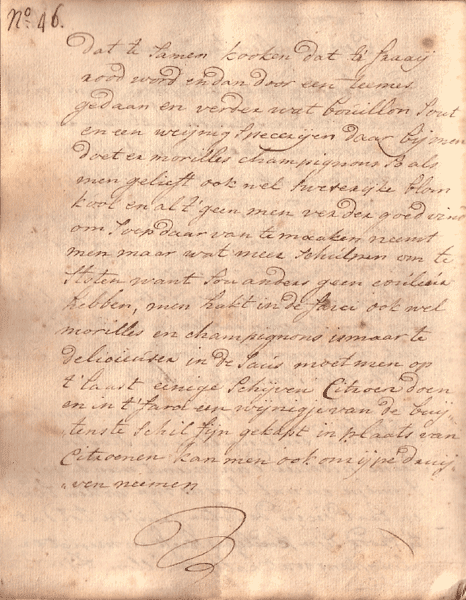 No. 46.
dat te samen kooken dat het fraaij
rood word en dan door een teemes
gedaan en verder wat bouillon Sout
en een weijnig Speceríjen daar bij men
doet er morilles champignons & als
men gelieft ook wel kool en al 't geen men verder goed vind
om Soep daar van te maaken neemt
men maar wat meer Schulpen om te
Stoten want Sou anders geen couleur
hebben, men hakt in de farci ook wel
morilles en champignons is maar te
delicieuser in de Saus moet men op
't laast eenige Schijven Citroen doen
en in 't farci een wijnigje van de buij
tenste Schil fijn gekapt in plaats van
Citroenen kan men ook onrijpe druij
ven neemen